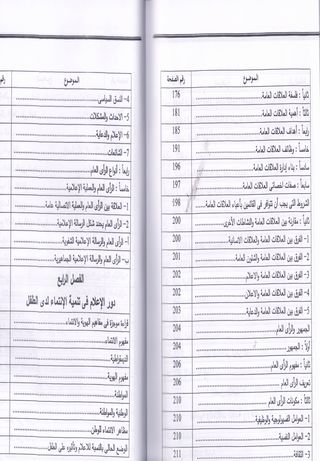 الموضوع
رقم الصفحة
ثانياً : فلسفة العلاقات العامة.
176
ثالثاً : أهمية العلاقات العامة.
181
رابعاً : أهداف العلاقات العامة.
185
خامساً : وظائف العلاقات العامة.
191
سادساً : بناء إدارة العلاقات العامة.
196
سابعاً : صفات اخصائي العلاقات العامة.
197
الشروط التي يجب أن تتوافر في القائمين بأعباء العلاقات العامة.
198
ثامناً : مقارنة بين العلاقات العامة والنشاطات الأخرى.
200
1- الفرق بين العلاقات العامة والعلاقات الانسانية.
200
2- الفرق بين العلاقات العامة والشئون العامة.
201
3- الفرق بين العلاقات العامة والاعلام.
202
4- الفرق بين العلاقات العامة والاعلان.
202
5- الفرق بين العلاقات العامة والدعاية.
203
الجمهور والرأى العام
204
أولاً : الجمهور
204
ثانياً : مفهوم الرأى العام
206
تعريف الرأى العام
206
ثالثاً : مكونات الرأى العام
210
1- العوامل الفسيولوجية والوظيفية
210
2- العوامل النفسية
210
3- الثقافة
211
الموضوع
رقم
4- النسق السياسى
5- الاحداث والمشكلات
6- الإعلام والدعاية
7- الشائعات
رابعاً : أنواع الرأى العام
خامساً : الرأى العام والعملية الإعلامية
1- العلاقة بين الرأى العام والعملية الاتصالية عامة
2- الرأى العام يحدد شكل الرسالة الإعلامية
أ- الرأى العام والرسالة الإعلامية الشفوية
ب- الرأى العام والرسالة الإعلامية الجماهيرية
الفصل الرابع
دور الإعلام في تنمية الإنتماء لدى الطفل
قراءة موجزة في مفاهيم الهوية والانتماء
مفهوم الانتماء
الديمقراطية
مفهوم الهوية
المواطنة
الوطنية والمواطنة
مظاهر الانتماء للوطن
الوضع الحالى بالنسبة للاعلام وتأثيره على الطفل